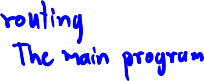 routing
The main program